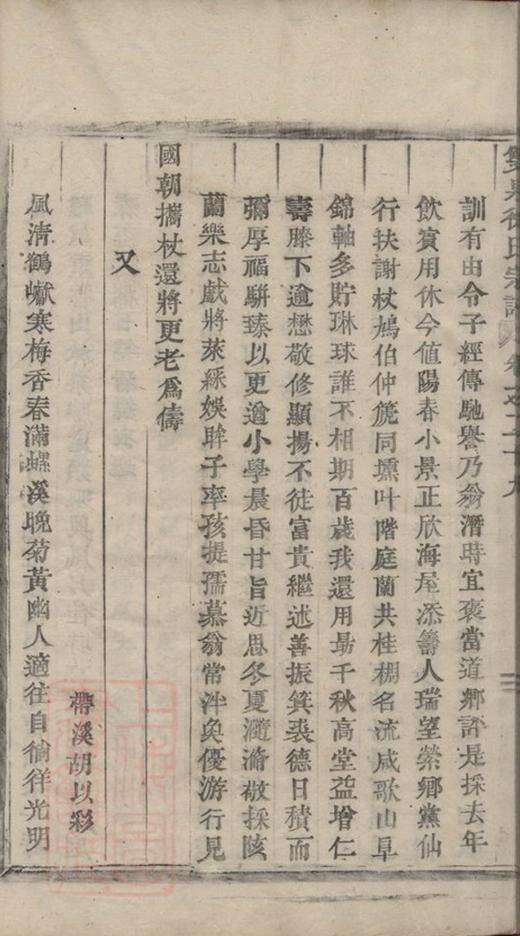 氏宗譜 卷之二十九
訓有由令子經傳馳譽乃翁潛時宜褒當道鄉評是採去年
飲賓用休今値陽春小景正欣海屋添籌人瑞望縈鄉黨仙
行扶謝杖鳩伯仲篪同壎叶階庭蘭共桂稠名流咸歌山阜
錦軸多貯琳球誰不相期百歲我還用勗千秋高堂益增仁
壽膝下逾懋敬修顯揚不徒富貴繼述善振箕裘德日積而
彌厚福駢臻以更遒小學晨昏甘旨近思冬夏瀡滫敬採陔
蘭樂志戲將萊綵娛眸子率孩提孺慕翁常泮奐優游行見
國朝攜杖還將更老爲儔
又
帶溪胡以彩
風清鶴巘寒梅香春滿螺溪晚菊黃幽人適往自徜徉光明